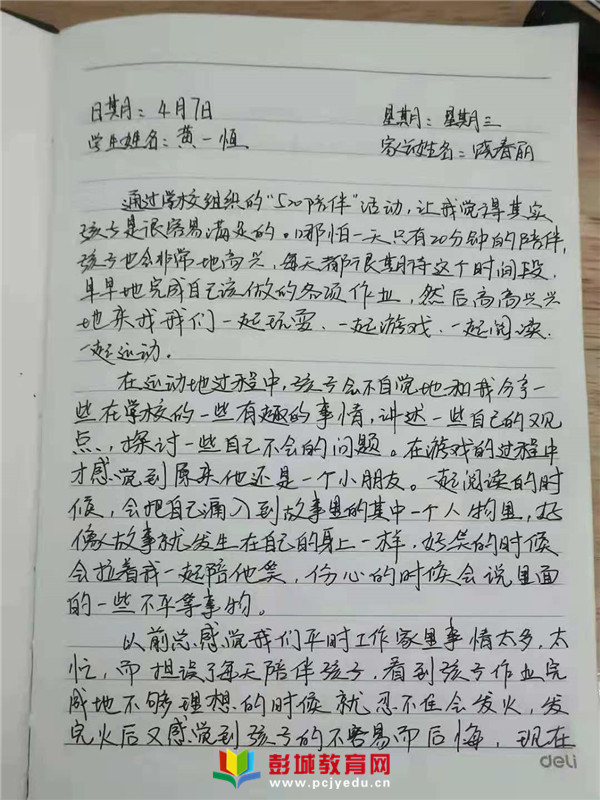 日期：4月7日 星期：星期三
学生姓名：黄一恒 家长姓名：陈春丽
通过学校组织的“520陪伴”活动，让我觉得其实
孩子是很容易满足的。哪怕一天只有20分钟的陪伴，
孩子也会非常地高兴，每天都很期待这个时间段，
早早地完成自己该做的各项作业，然后高高兴兴
地来找我们一起玩耍、一起游戏、一起阅读、
一起运动。
在运动地过程中，孩子会不自觉地和我分享一
些在学校的一些有趣的事情，讲述一些自己的观
点，探讨一些自己不会的问题。在游戏的过程中
才感觉到原来他还是一个小朋友。一起阅读的时
候，会把自己涌入到故事里的其中一个人物里，好
像故事就发生在自己的身上一样，好笑的时候
会拉着我一起陪他笑，伤心的时候会说里面
的一些不平等事物。
以前总感觉我们平时工作家里事情太多，太
忙，而担误了每天陪伴孩子，看到孩子作业完
成地不够理想的时候就忍不住会发火，发
完火后又感觉到孩子的不容易而后悔，现在
deli
彭城教育网
www.pcjyedu.cn